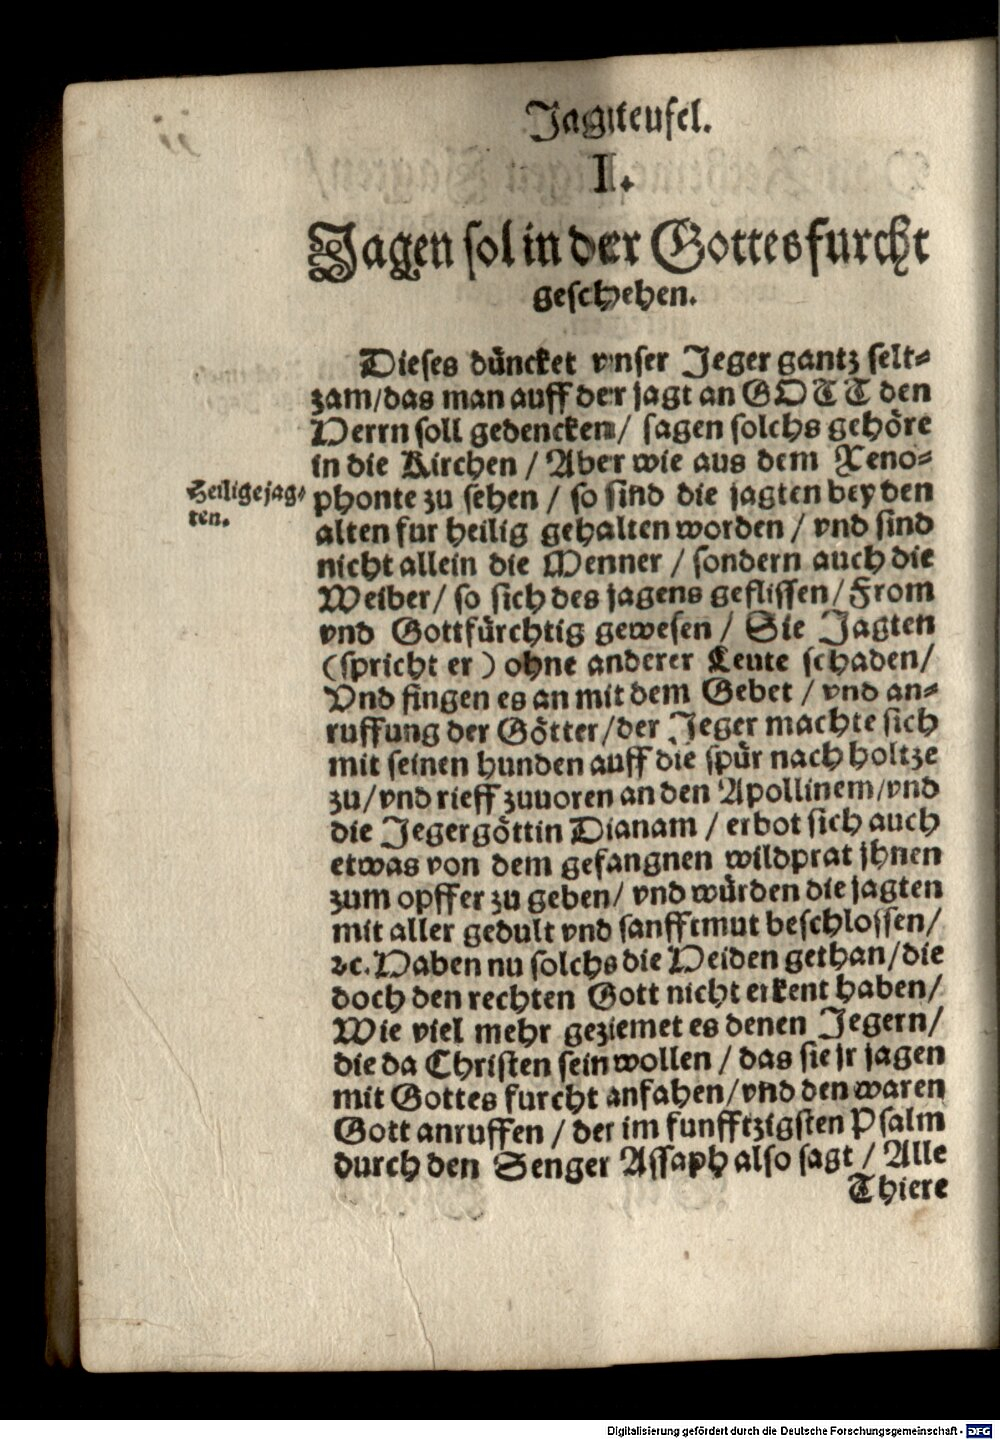 Jagteufel.
I.
Jagen sol in der Gottesfurcht
geschehen.
Dieses düncket vnser Jeger gantz selt-
zam/das man auff der jagt an GOTT den
Herrn soll gedencken/ sagen solchs gehöre
in die Kirchen / Aber wie aus dem Xeno-
Heilige jag-
ten.
phonte zu sehen / so sind die jagten bey den
alten fur heilig gehalten worden / vnd sind
nicht allein die Menner / sondern auch die
Weiber/ so sich des jagens geflissen/ From
vnd Gottfürchtig gewesen / Sie Jagten
(spricht er) ohne anderer Leute schaden/
Vnd fingen es an mit dem Gebet / vnd an-
ruffung der Götter/der Jeger machte sich
mit seinen hunden auff die spür nach holtze
zu/vnd rieff zuuoren an den Apollinem/vnd
die Jegergöttin Dianam / erbot sich auch
etwas von dem gefangnen wildprat jhnen
zum opffer zu geben/ vnd würden die jagten
mit aller gedult vnd sanfftmut beschlossen/
ꝛc. Haben nu solchs die Heiden gethan/die
doch den rechten Gott nicht erkent haben/
Wie viel mehr geziemet es denen Jegern/
die da Christen sein wollen / das sie jr jagen
mit Gottes furcht anfahen/vnd den waren
Gott anruffen / der im funfftzigsten Psalm
durch den Senger Assaph also sagt / Alle
Thiere
Digitalisierung gefördert durch die Deutsche Forschungsgemeinschaft - DFG